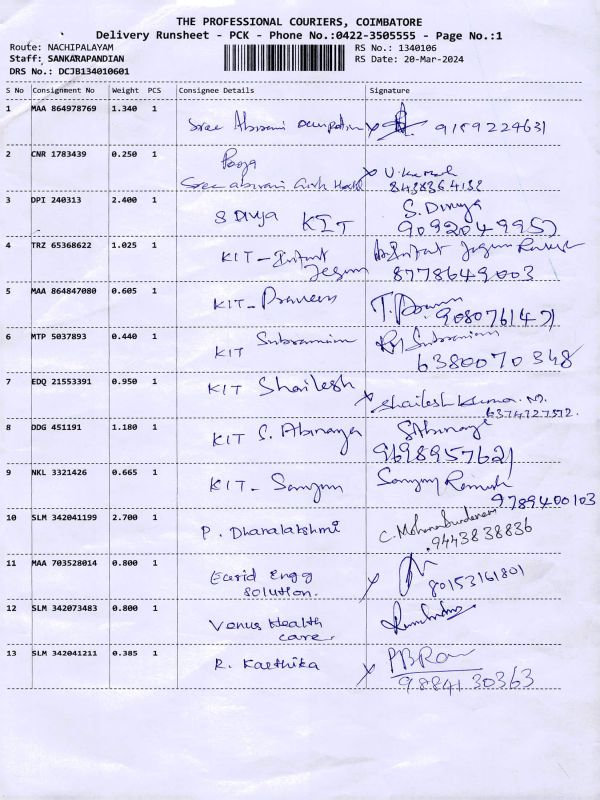 THE PROFESSIONAL COURIERS, COIMBATORE
Delivery Runsheet - PCK - Phone No.:0422-3505555 - Page No.:1
Route: NACHIPALAYAM RS No.: 1340106
Staff: SANKARAPANDIAN RS Date: 20-Mar-2024
DRS No.: DCJB134010601
S No Consignment No Weight PCS Consignee Details Signature
1 MAA 864978769 1.340 1
Sree Abirami 9159224631
2 CNR 1783439 0.250 1
Pooja
8438364132
3 DPI 240313 2.400 1
S Divya KIT S. Divya
9092049957
4 TRZ 65368622 1.025 1
KIT - Infant
Jegan 8778649003
5 MAA 864847080 0.605 1
KIT - Praveen
9080761471
6 MTP 5037893 0.440 1
KIT
6380070348
7 EDQ 21553391 0.950 1
KIT Shailesh
Shailesh Kumar. M.
6374727572.
8 DDG 451191 1.180 1
KIT S. Abinaya S.Abinaya
9698957621
9 NKL 3321426 0.665 1
KIT - Sanjay Sanjay Ramesh
9789400103
10 SLM 342041199 2.700 1
P. Dharalakshmi
9443838836
11 MAA 703528014 0.800 1
Engg
Solution. 80153161801
12 SLM 342073483 0.800 1
Venus Health
care.
13 SLM 342041211 0.385 1
R. Karthika
9884130363